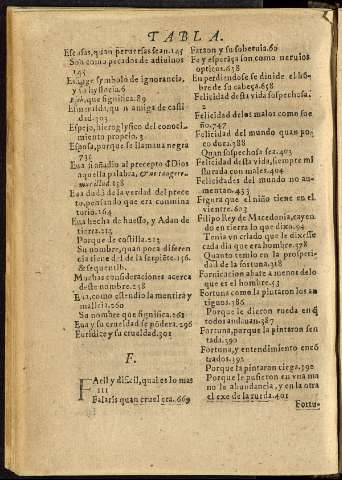 TABLA.
Escusas, quan peruersas sean. 145
Son como pecados de adiuinos
143
symbolo de ignorancia,
y su hystoria. 6
que significa. 89
Esmeralda, quan amiga de casti-
dad. 303
Espejo, hieroglyfico del conoci-
miento proprio. 3
Esposa, porque se llama negra
731
Eua añadio al precepto d Dios
aquella palabra,
238
Eua dudò de la verdad del precepto
to, pensando que era commina
torio. 164
Eua hecha de huesso, y Adan de
tierra. 213
Porque de costilla. 213
Su nombre, quan poca diferen
cia tiene del de la serpiēte. 156.
& sequentib.
Muchas consideraciones acerca
deste nombre. 258
Eua, como estendio la mentira y
malicia. 260
Su nombre que significa. 261
Eua y su crueldad se pōdera. 296
Euridice y su crueldad. 301
F.
Facil y dificil, qual es lo mas
111
Falaris quan cruel era. 669
Faraon y su soberuia. 60
Fe y esperāça son como neruios
opticos. 638
En perdiendose se diuide el hō-
bre de su cabeça. 658
Felicidad desta vida sospechosa.
2
Felicidad de los malos como sue
ño. 747
Felicidad del mundo quan po-
co dura. 388
Quan sospechosa sea. 403
Felicidad desta vida, siempre mi
sturada con males. 404
Felicidades del mundo no au-
mentan. 433
Figura que el niño tiene en el
vientre. 603
Filipo Rey de Macedonia, cayen
do en tierra lo que dixo. 94
Tenia vn criado que le dixesse
cada dia que era hombre. 378
Quanto temio en la prosperi-
dad de la fortuna. 386
Fornicacion abate a menos de lo
que es el hombre. 53
Fortuna como la pintaron los an
tiguos. 386
Porque le dieron rueda en q̄
todos anduuian. 387
Fortuna, porque la pintaron sen
tada. 390
Fortuna, y entendimiento encō
trados. 392
Porque la pintaron ciega. 392
Porque le pusieron en vna ma
no la abundancia, y en la otra
el exe de la rueda. 401
Fortu-